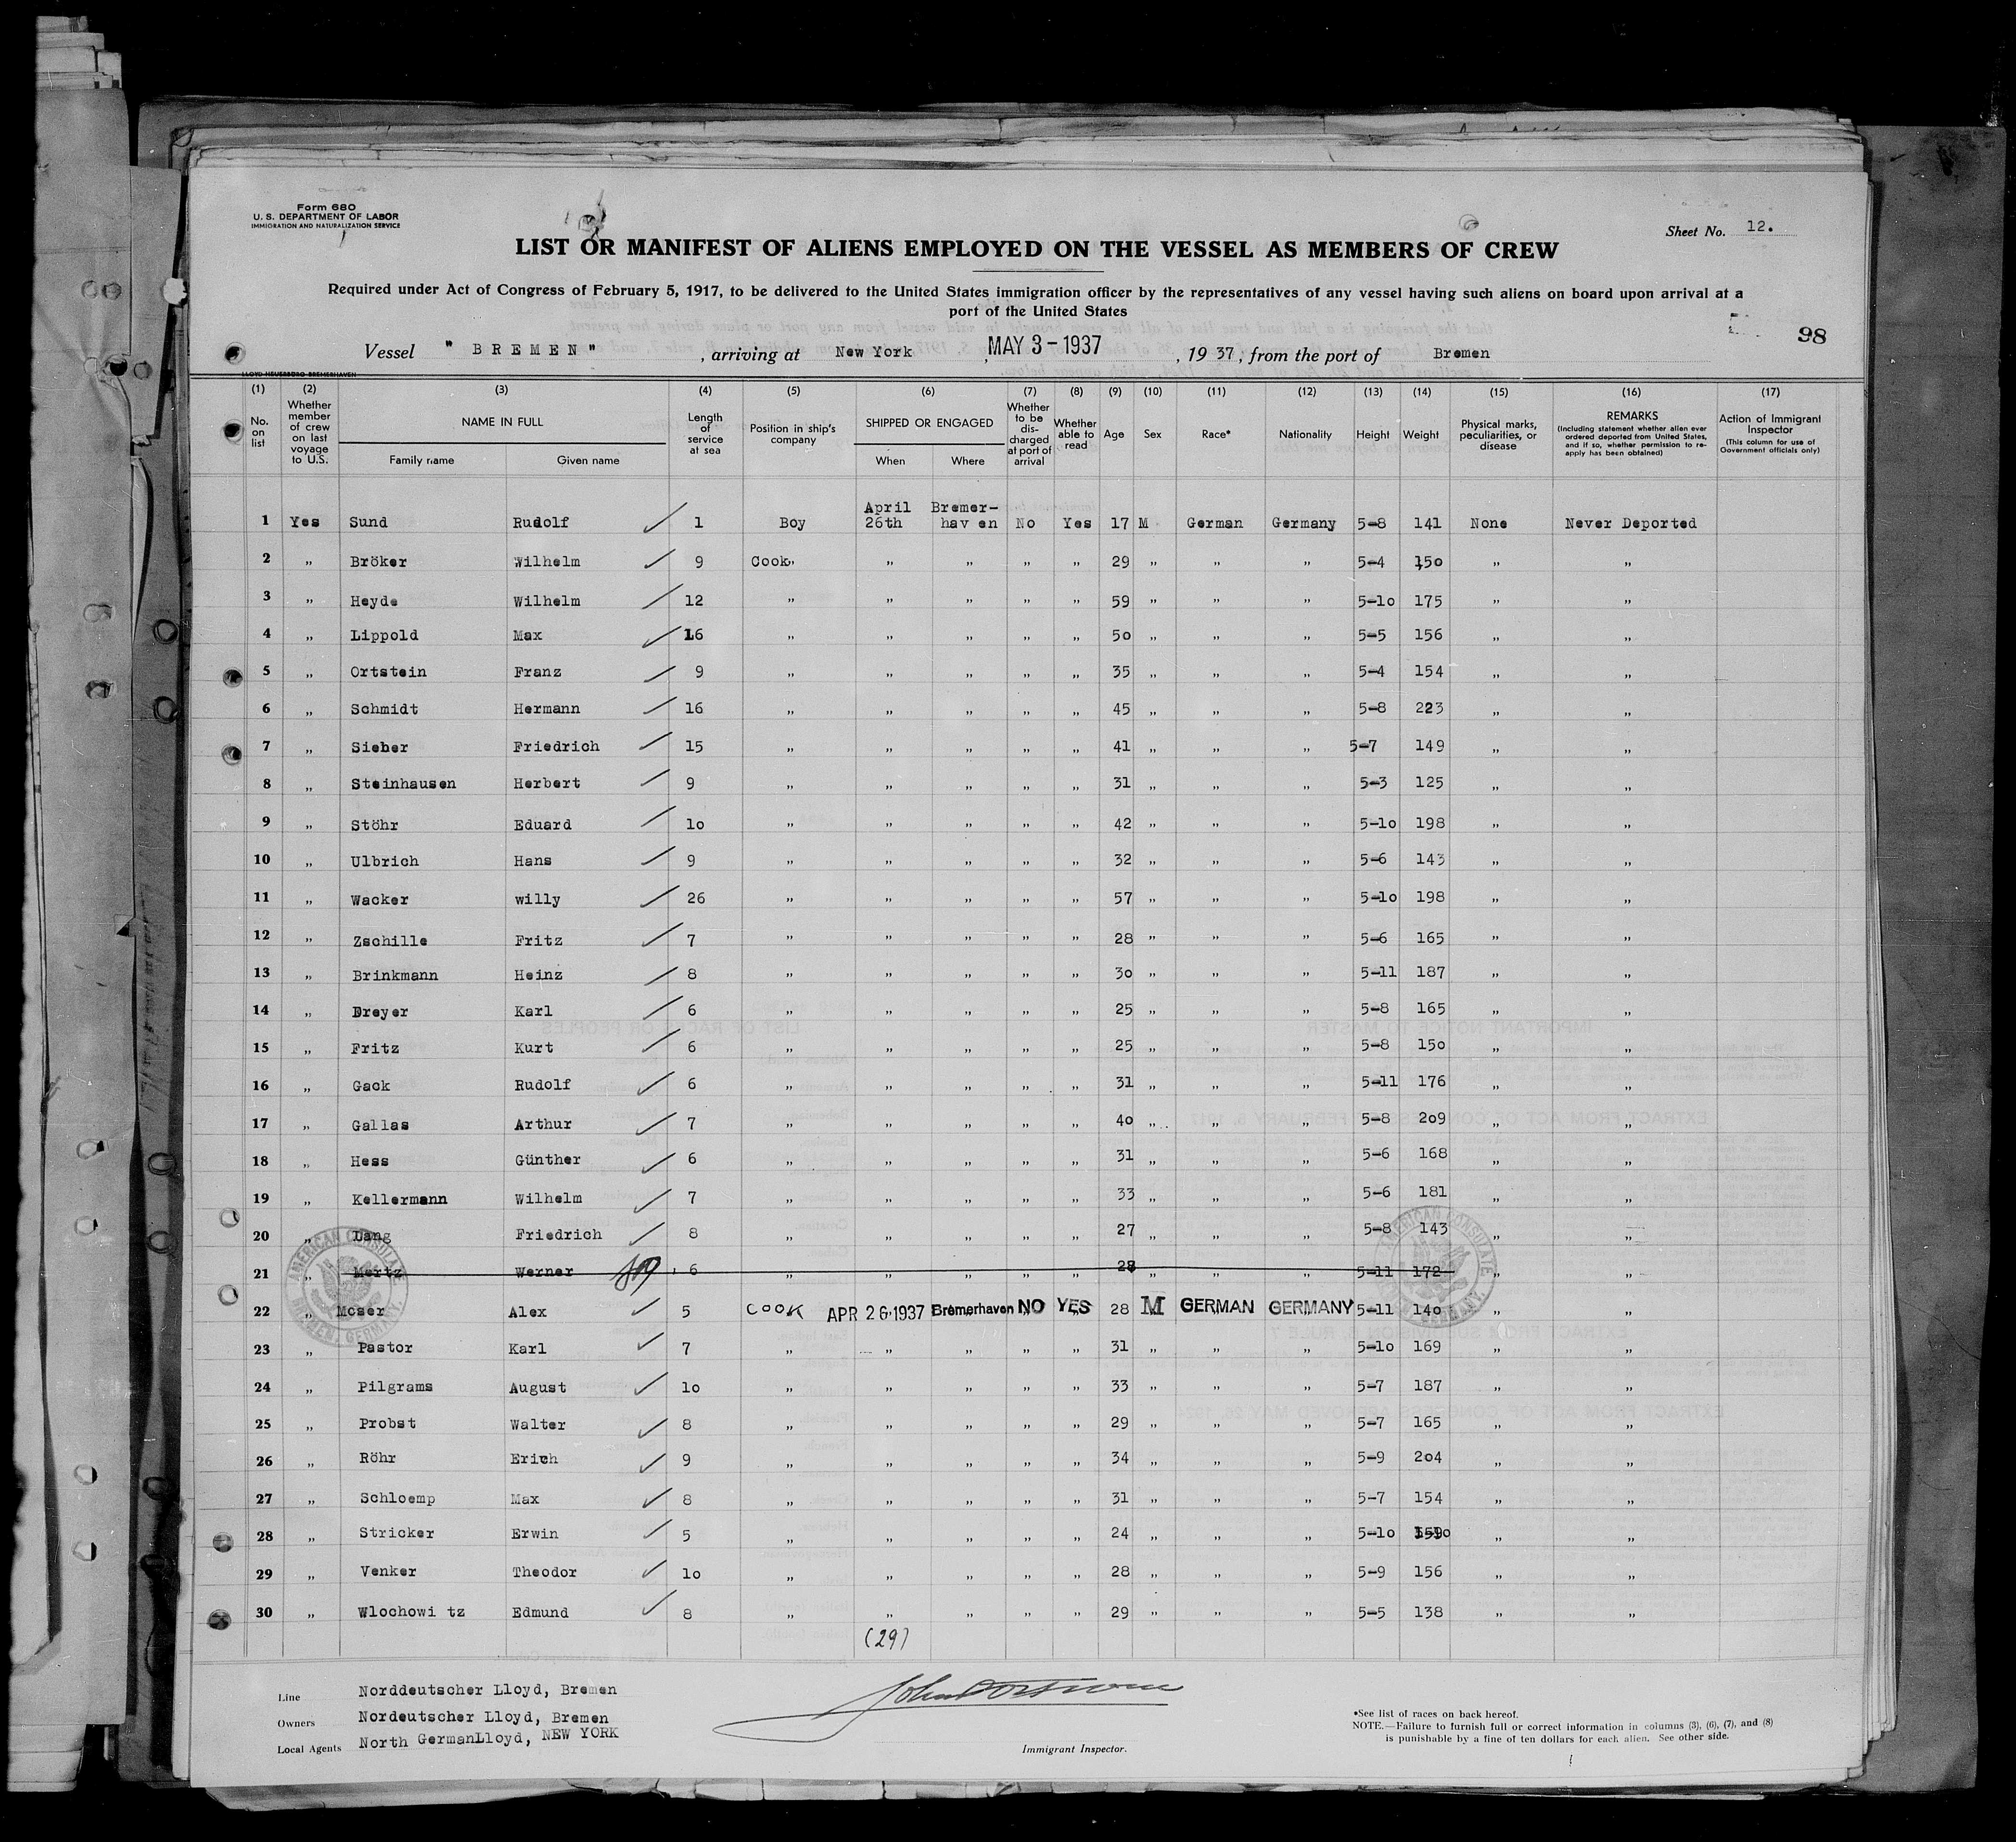 Form 680
U. S. DEPARTMENT OF LABOR
IMMIGRATION AND NATURALIZATION SERVICE
Sheet No. 12.
LIST OR MANIFEST OF ALIENS EMPLOYED ON THE VESSEL AS MEMBERS OF CREW
Required under Act of Congress of February 5, 1917, to be delivered to the United States immigration officer by the representatives of any vessel having such aliens on board upon arrival at a
port of the United States
98
Vessel "BREMEN", arriving at New York, MAY 3-1937, 1937, from the port of Bremen
LLOYD HEUERBÜRO BREMERHAVEN
(1) (2) (3) (4) (5) (6) (7) (8) (9) (10) (11) (12) (13) (14) (15) (16) (17)
No. on list
Whether member of crew on last voyage to U.S.
NAME IN FULL
Family name Given name
Length of service at sea
Position in ship's company
SHIPPED OR ENGAGED
When Where
Whether to be discharged at port of arrival
Whether able to read
Age
Sex
Race*
Nationality
Height
Weight
Physical marks, peculiarities, or disease
REMARKS
(Including statement whether alien ever ordered deported from United States, and if so, whether permission to re-apply has been obtained)
Action of Immigrant Inspector
(This column for use of Government officials only)
1 Yes Sund Rudolf 1 Boy April 26th Bremer-haven No Yes 17 M German Germany 5-8 141 None Never Deported
2 " Bröker Wilhelm 9 Cook" " " " " 29 " " " 5-4 150 " "
3 " Heyde Wilhelm 12 " " " " " 59 " " " 5-10 175 " "
4 " Lippold Max 16 " " " " " 50 " " " 5-5 156 " "
5 " Ortstein Franz 9 " " " " " 35 " " " 5-4 154 " "
6 " Schmidt Hermann 16 " " " " " 45 " " " 5-8 223 " "
7 " Sieber Friedrich 15 " " " " " 41 " " " 5-7 149 " "
8 " Steinhausen Herbert 9 " " " " " 31 " " " 5-3 125 " "
9 " Stöhr Eduard 10 " " " " " 42 " " " 5-10 198 " "
10 " Ulbrich Hans 9 " " " " " 32 " " " 5-6 143 " "
11 " Wacker willy 26 " " " " " 57 " " " 5-10 198 " "
12 " Zschille Fritz 7 " " " " " 28 " " " 5-6 165 " "
13 " Brinkmann Heinz 8 " " " " " 30 " " " 5-11 187 " "
14 " Dreyer Karl 6 " " " " " 25 " " " 5-8 165 " "
15 " Fritz Kurt 6 " " " " " 25 " " " 5-8 150 " "
16 " Gack Rudolf 6 " " " " " 31 " " " 5-11 176 " "
17 " Gallas Arthur 7 " " " " " 40 " " " 5-8 209 " "
18 " Hess Günther 6 " " " " " 31 " " " 5-6 168 " "
19 " Kellermann Wilhelm 7 " " " " " 33 " " " 5-6 181 " "
20 " Lang Friedrich 8 " " " " " 27 " " " 5-8 143 " "
21 " Mertz Werner 6 " " " " " 28 " " " 5-11 172 " "
22 " Moser Alex 5 COOK APR 26.1937 Bremerhaven NO YES 28 M GERMAN GERMANY 5-11 140 " "
23 " Pastor Karl 7 " " " " " 31 " " " 5-10 169 " "
24 " Pilgrams August 10 " " " " " 33 " " " 5-7 187 " "
25 " Probst Walter 8 " " " " " 29 " " " 5-7 165 " "
26 " Röhr Erich 9 " " " " " 34 " " " 5-9 204 " "
27 " Schloemp Max 8 " " " " " 31 " " " 5-7 154 " "
28 " Stricker Erwin 5 " " " " " 24 " " " 5-10 " "
29 " Venker Theodor 10 " " " " " 28 " " " 5-9 156 " "
30 " Wlochowi tz Edmund 8 " " " " " 29 " " " 5-5 138 " "
(29)
AMERICAN CONSULATE
BREMEN, GERMANY.
AMERICAN CONSULATE
BREMEN, GERMANY.
Line Norddeutscher Lloyd, Bremen
Owners Nordeutscher Lloyd, Bremen
Local Agents North GermanLloyd, NEW YORK
Immigrant Inspector.
*See list of races on back hereof.
NOTE.—Failure to furnish full or correct information in columns (3), (6), (7), and (8)
is punishable by a fine of ten dollars for each alien. See other side.